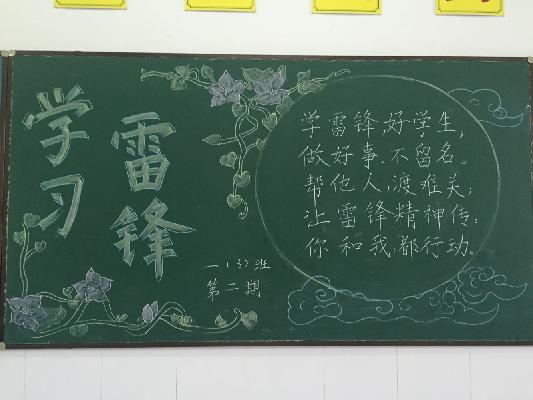 学习
雷锋
一(3)班
第二期
学雷锋,好学生,
做好事,不留名。
帮他人,渡难关;
让雷锋精神传;
你和我,都行动。